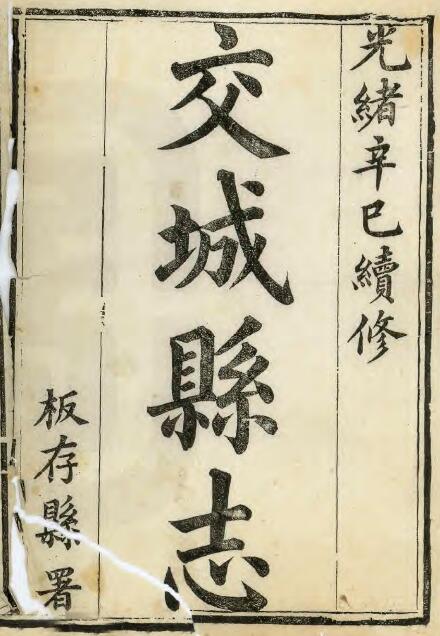 光緒辛巳續修
交城縣志
板存縣署